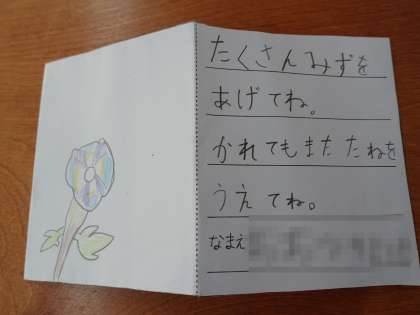 たくさんみずを
あげてね。
かれてもまたたねを
うえてね。
なまえ